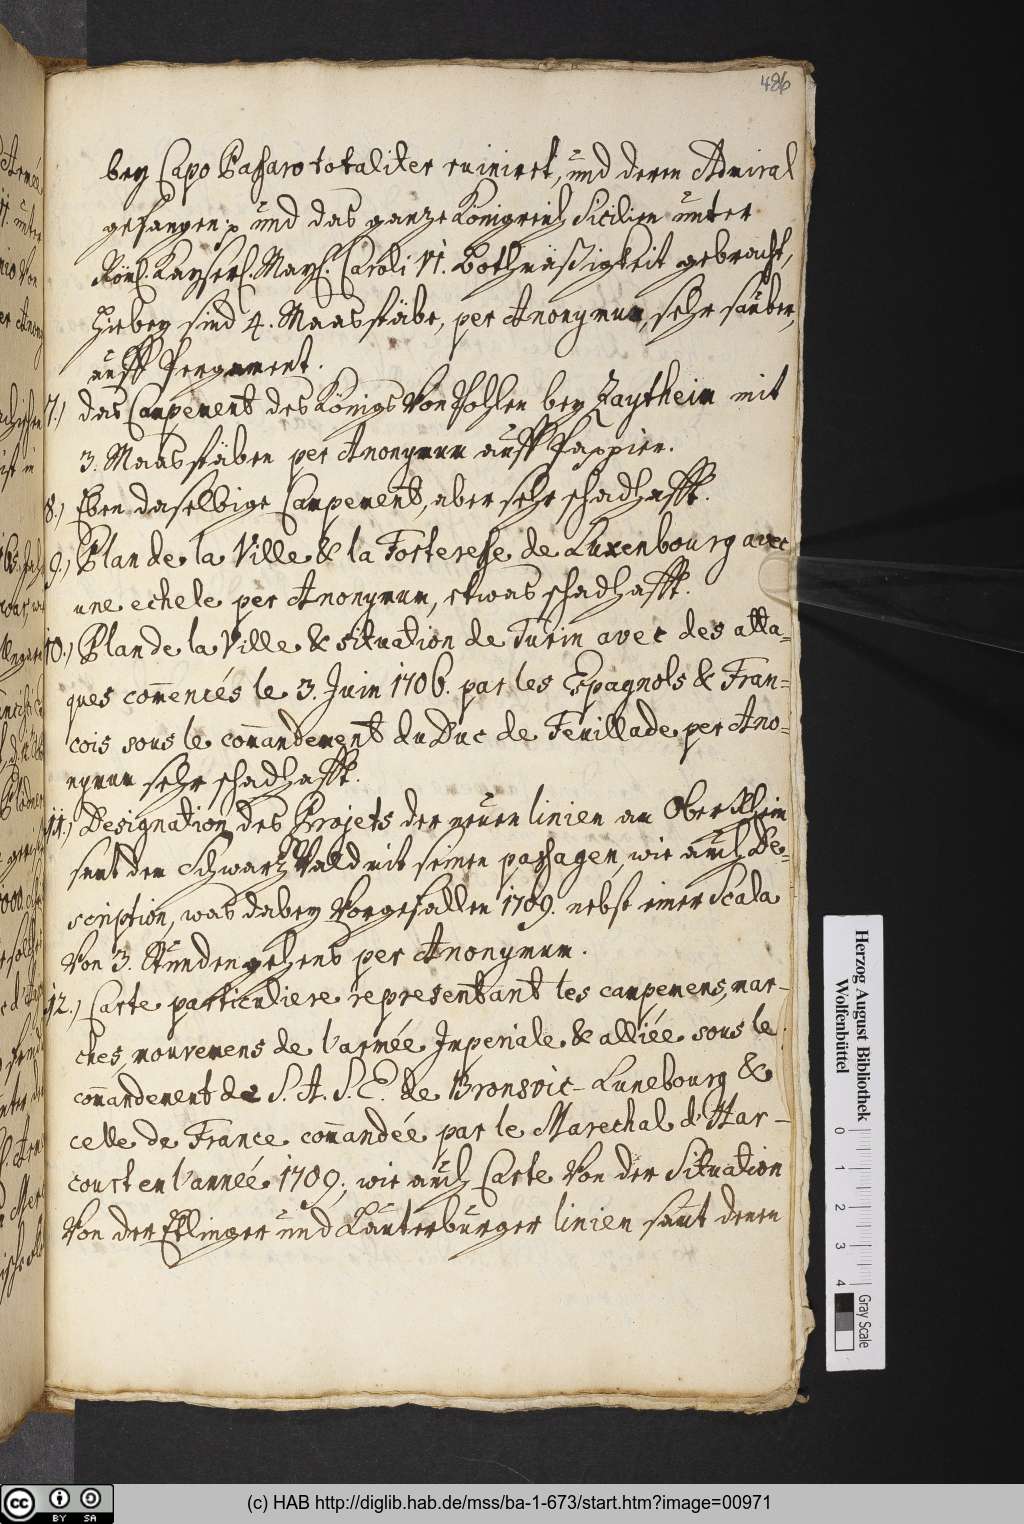 486
bey Capo Passaro totaliter ruiniret, und deren Admiral
gefangen, und das ganze Königreich Sicilien unter
Röml. Kayserl. May. Caroli VI. Bothmäßigkeit gebracht,
hiebey sind 4. Maasstäbe, per Anonymum, sehr sauber,
auff Pergament.
7.) das Campement des Königs Von Pohlen bey Zaytheim mit
3. Maasstäben per Anonymum auff Pappier.
8.) Eben daselbige Campement, aber sehr schadhafft.
9.) Plan de la Ville & la Forteresse de Luxenbourg avec
une echele per Anonymum, etwas schadhafft.
10.) Plan de la Ville & situation de Turin avec des atta=
ques com̅encés le 3. Juin 1706. par les Espagnols & Fran=
cois sous le com̅andement du Duc de Feuillade per Ano=
nymum sehr schadhafft.
11.) Designation des Projets der neuen linien am Ober Rhein
samt dem Schwarz Wald mit seinen passagen, wie auch De=
scription, was dabey Vorgefallen 1709. nebst einer Scala
Von 3. Stunden gehens per Anonymum.
12.) Carte particuliere representant les campemens, mar-
ches, mouvemens de l'armée Imperiale & alliée sous le
com̅andement de S. A. S. E. de Bronsvic-Lunebourg &
celle de France com̅andée par le Marechal d'Har-
court en l'année 1709; wie auch Carte Von der Situation
Von der Etlinger und Lauterburger linien samt denen
Herzog August Bibliothek
Wolfenbüttel
0 1 2 3 4
Gray Scale
cc BY SA
(c) HAB http://diglib.hab.de/mss/ba-1-673/start.htm?image=00971